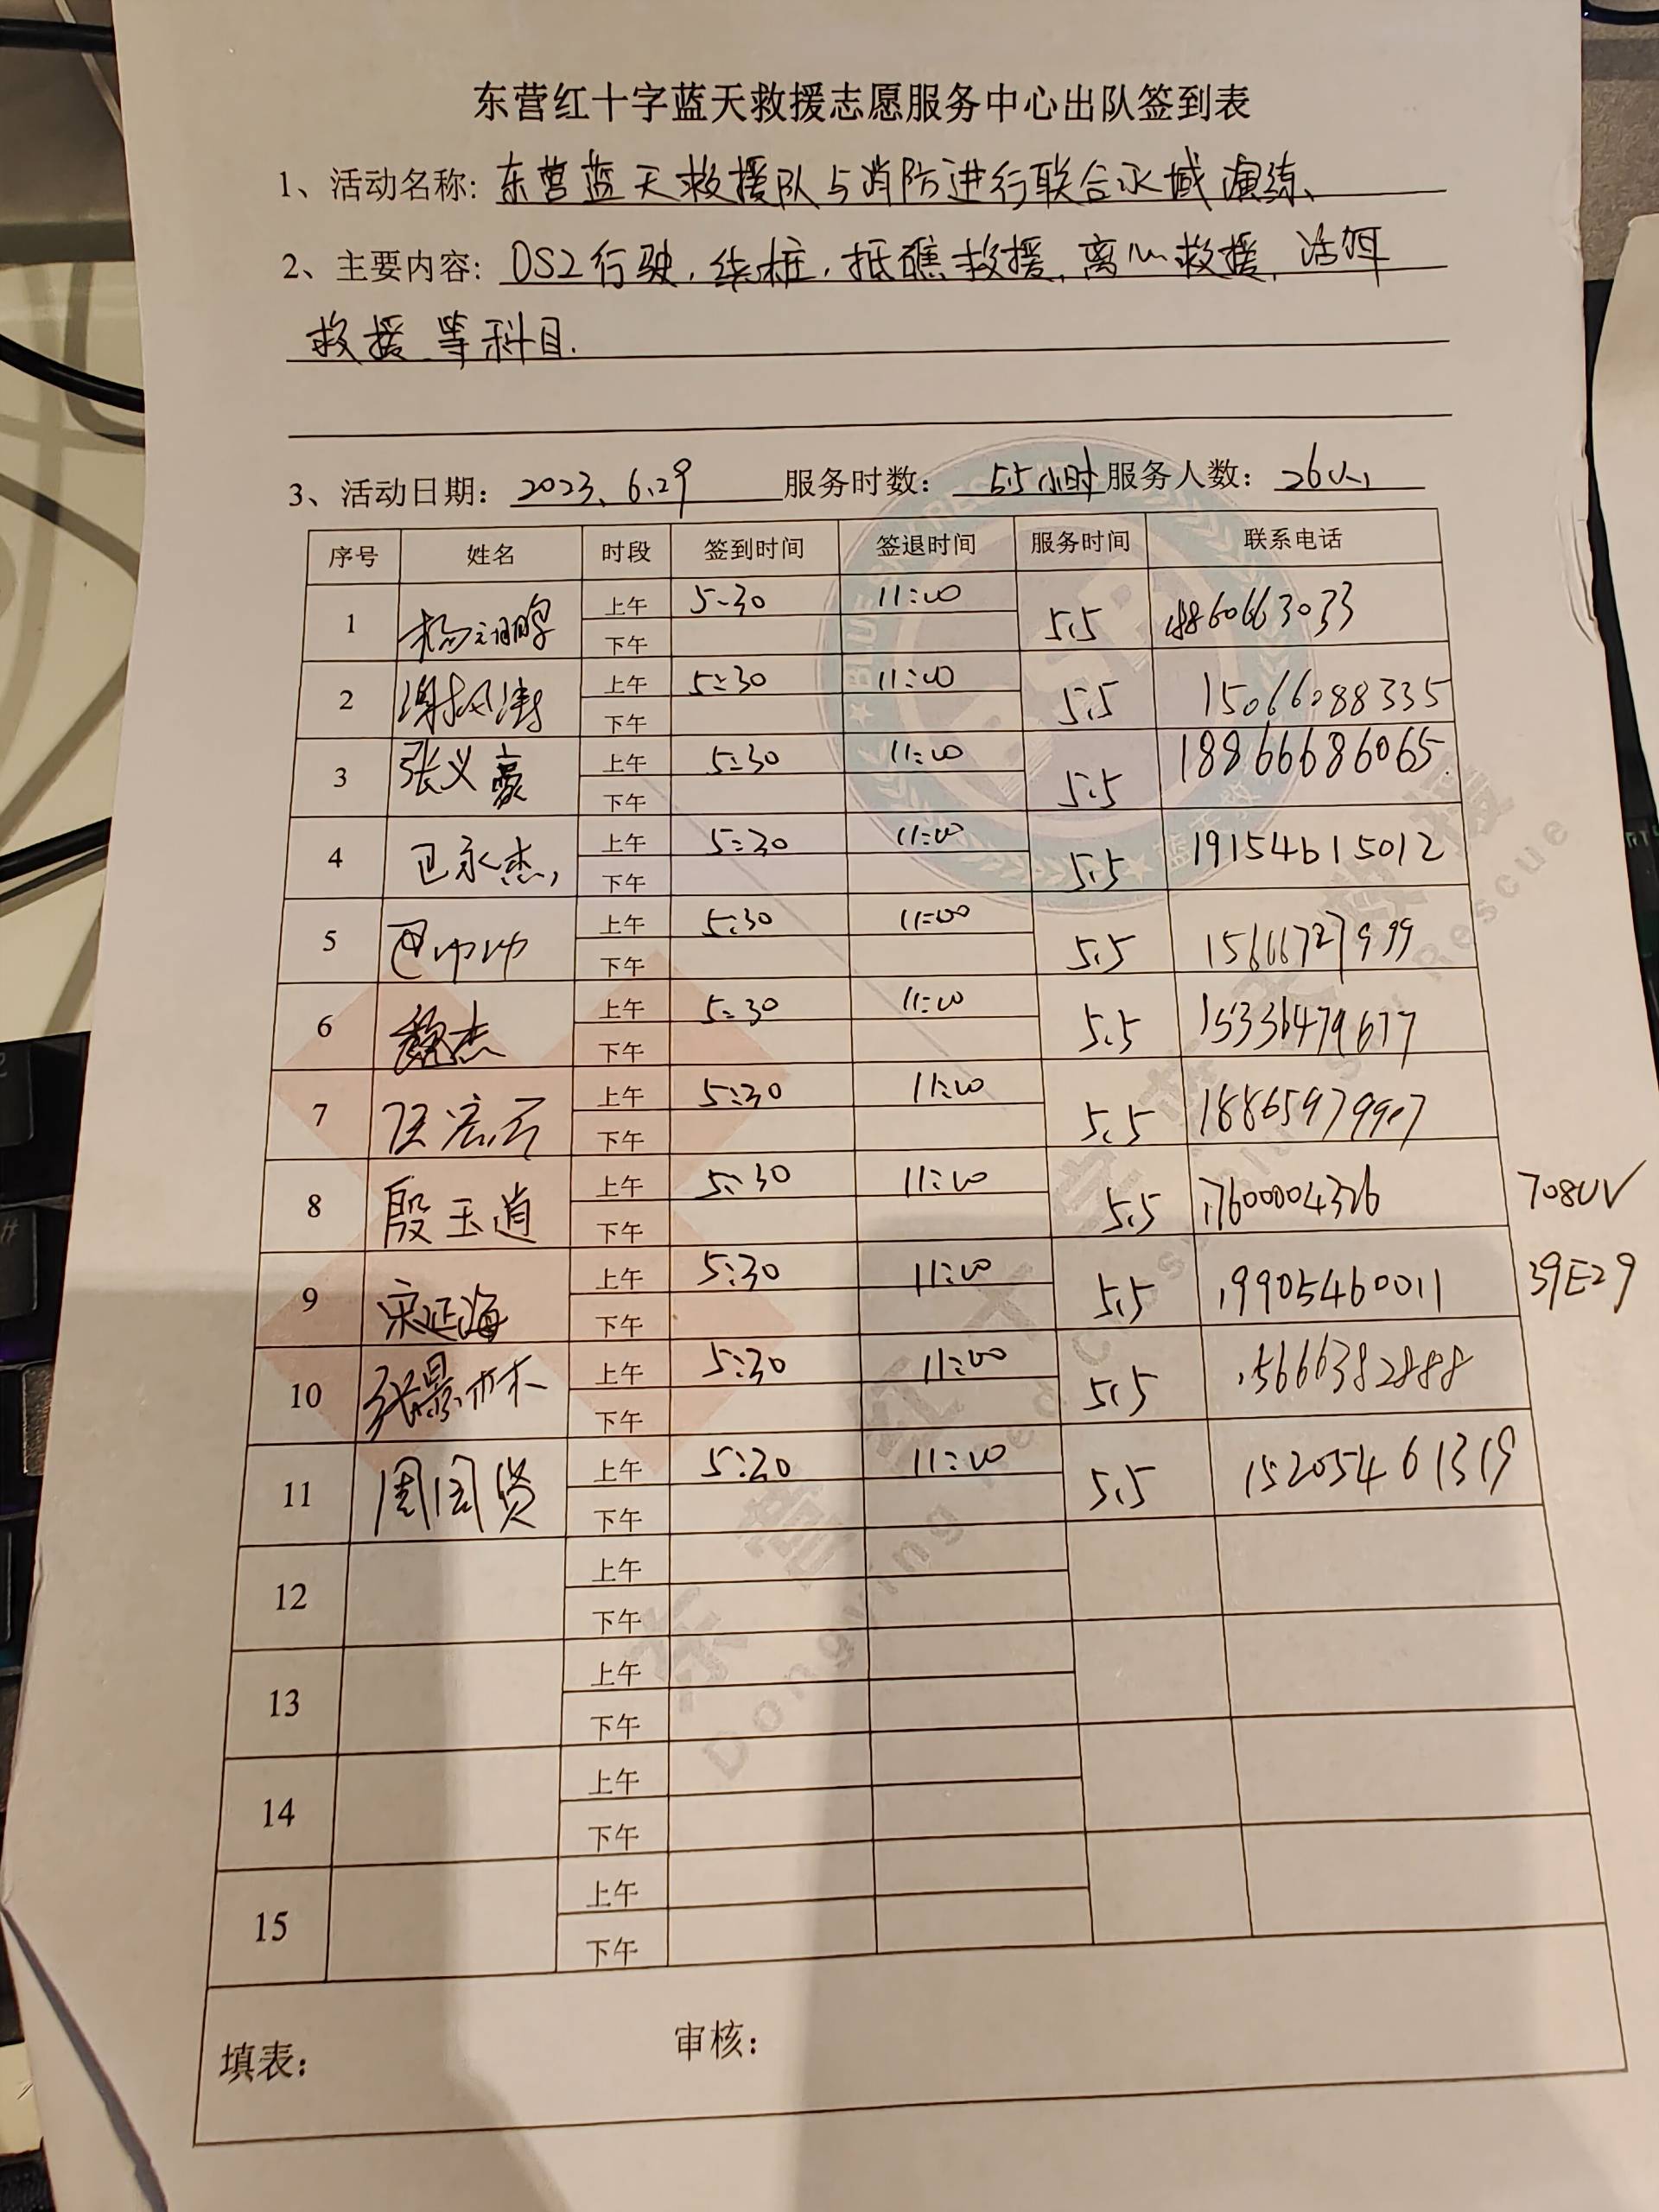 东营红十字蓝天救援志愿服务中心出队签到表
1、活动名称: 东营蓝天救援队与消防进行联合水域演练、
2、主要内容: OS2行驶, 绕桩, 抵礁救援, 离心救援, 活饵
救援 等科目.
3、活动日期: 2023.6.29 服务时数: 5.5小时 服务人数: 26人
序号 姓名 时段 签到时间 签退时间 服务时间 联系电话
1 上午 5:30 11:00 5.5 18860663033
下午
2 上午 5:30 11:00 5.5 15066088335
下午
3 张义豪 上午 5:30 11:00 5.5 18866686065
下午
4 巴永杰 上午 5:30 11:00 5.5 19154615012
下午
5 巴帅帅 上午 5:30 11:00 5.5 15666727999
下午
6 魏杰 上午 5:30 11:00 5.5
下午
7 上午 5:30 11:00 5.5
下午
8 殷玉道 上午 5:30 11:00 5.5 17600004326 708UV
下午
9 宋延海 上午 5:30 11:00 5.5 19905460011 39E29
下午
10 张景林 上午 5:30 11:00 5.5 15666382888
下午
11 上午 5:30 11:00 5.5 15205461319
下午
12 上午
下午
13 上午
下午
14 上午
下午
15 上午
下午
填表: 审核: